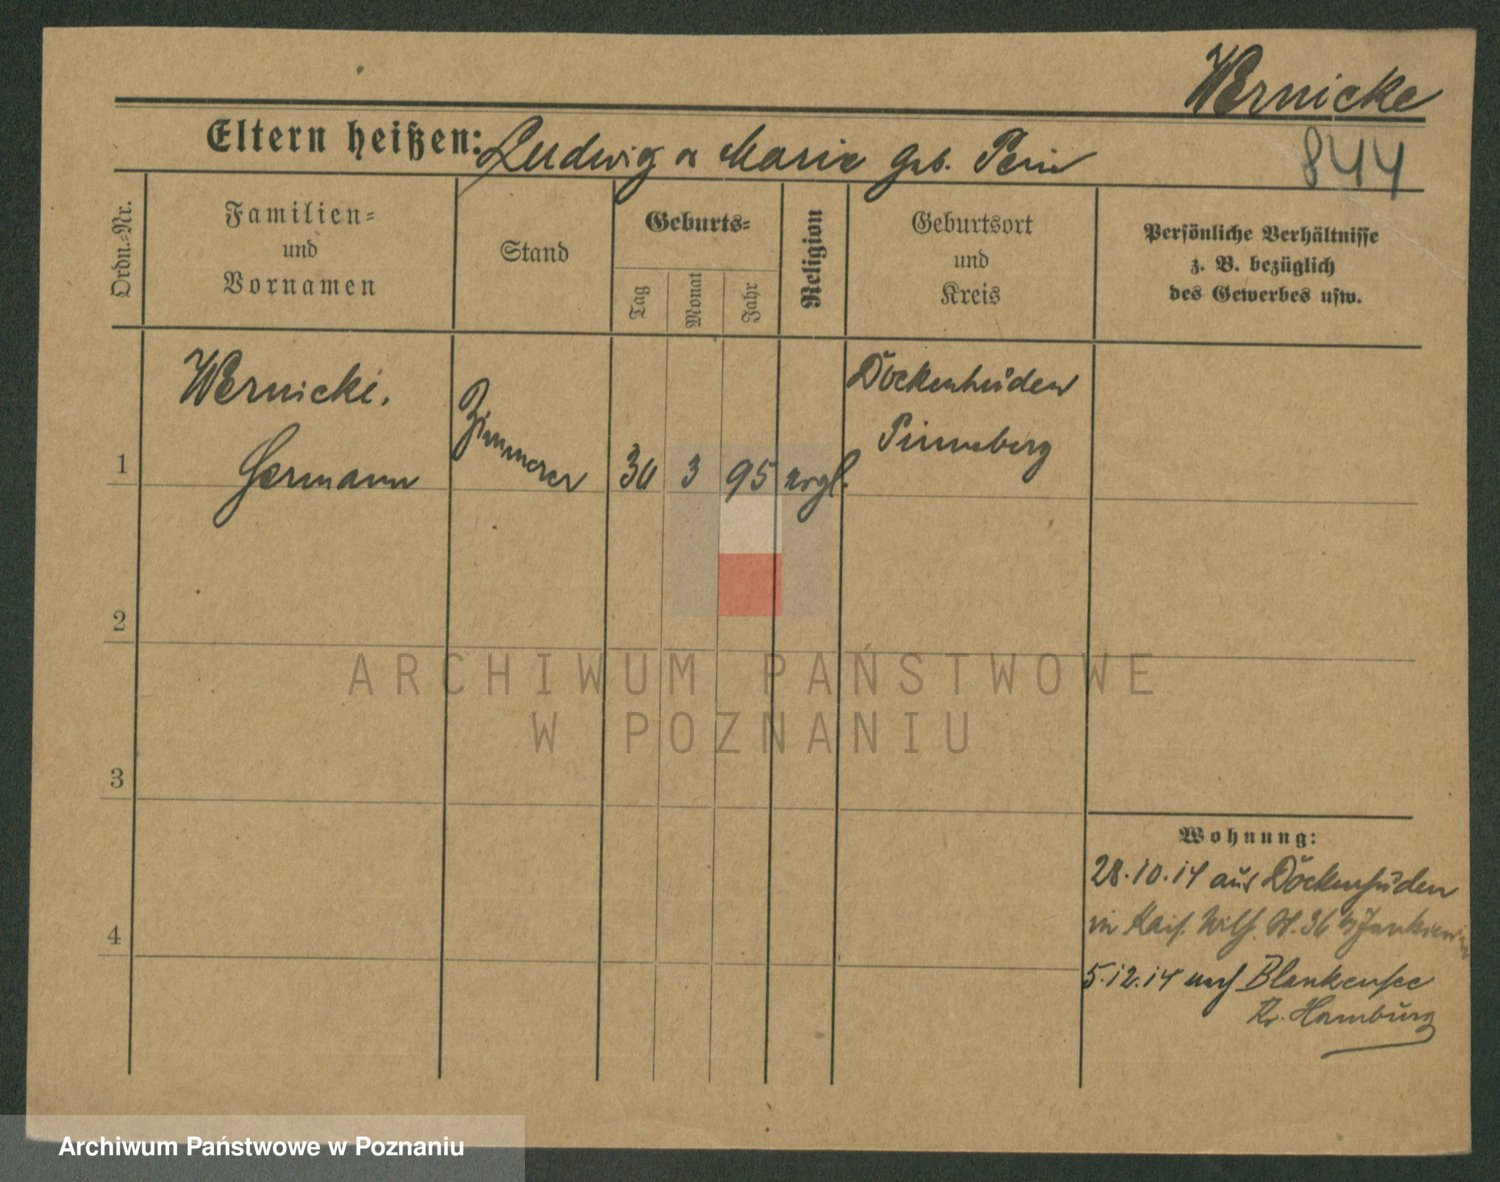 Wernicke
844
Eltern heißen: Ludwig u Maria geb.
Ordn.-Nr.
Familien-
und
Vornamen
Stand
Geburts-
Tag
Monat
Jahr
Religion
Geburtsort
und
Kreis
Persönliche Verhältnisse
z. B. bezüglich
des Gewerbes usw.
1
Wernicke.
Hermann
Zimmerer
30 3 95 evgl.
Dockenhuden
Pinneberg
2
3
4
Wohnung:
28.10.14 aus Dockenhuden
in Kais. Wilh. St. 36 b/
5.12.14 nach Blankensee
Kr. Hamburg
ARCHIWUM PAŃSTWOWE
W POZNANIU
Archiwum Państwowe w Poznaniu